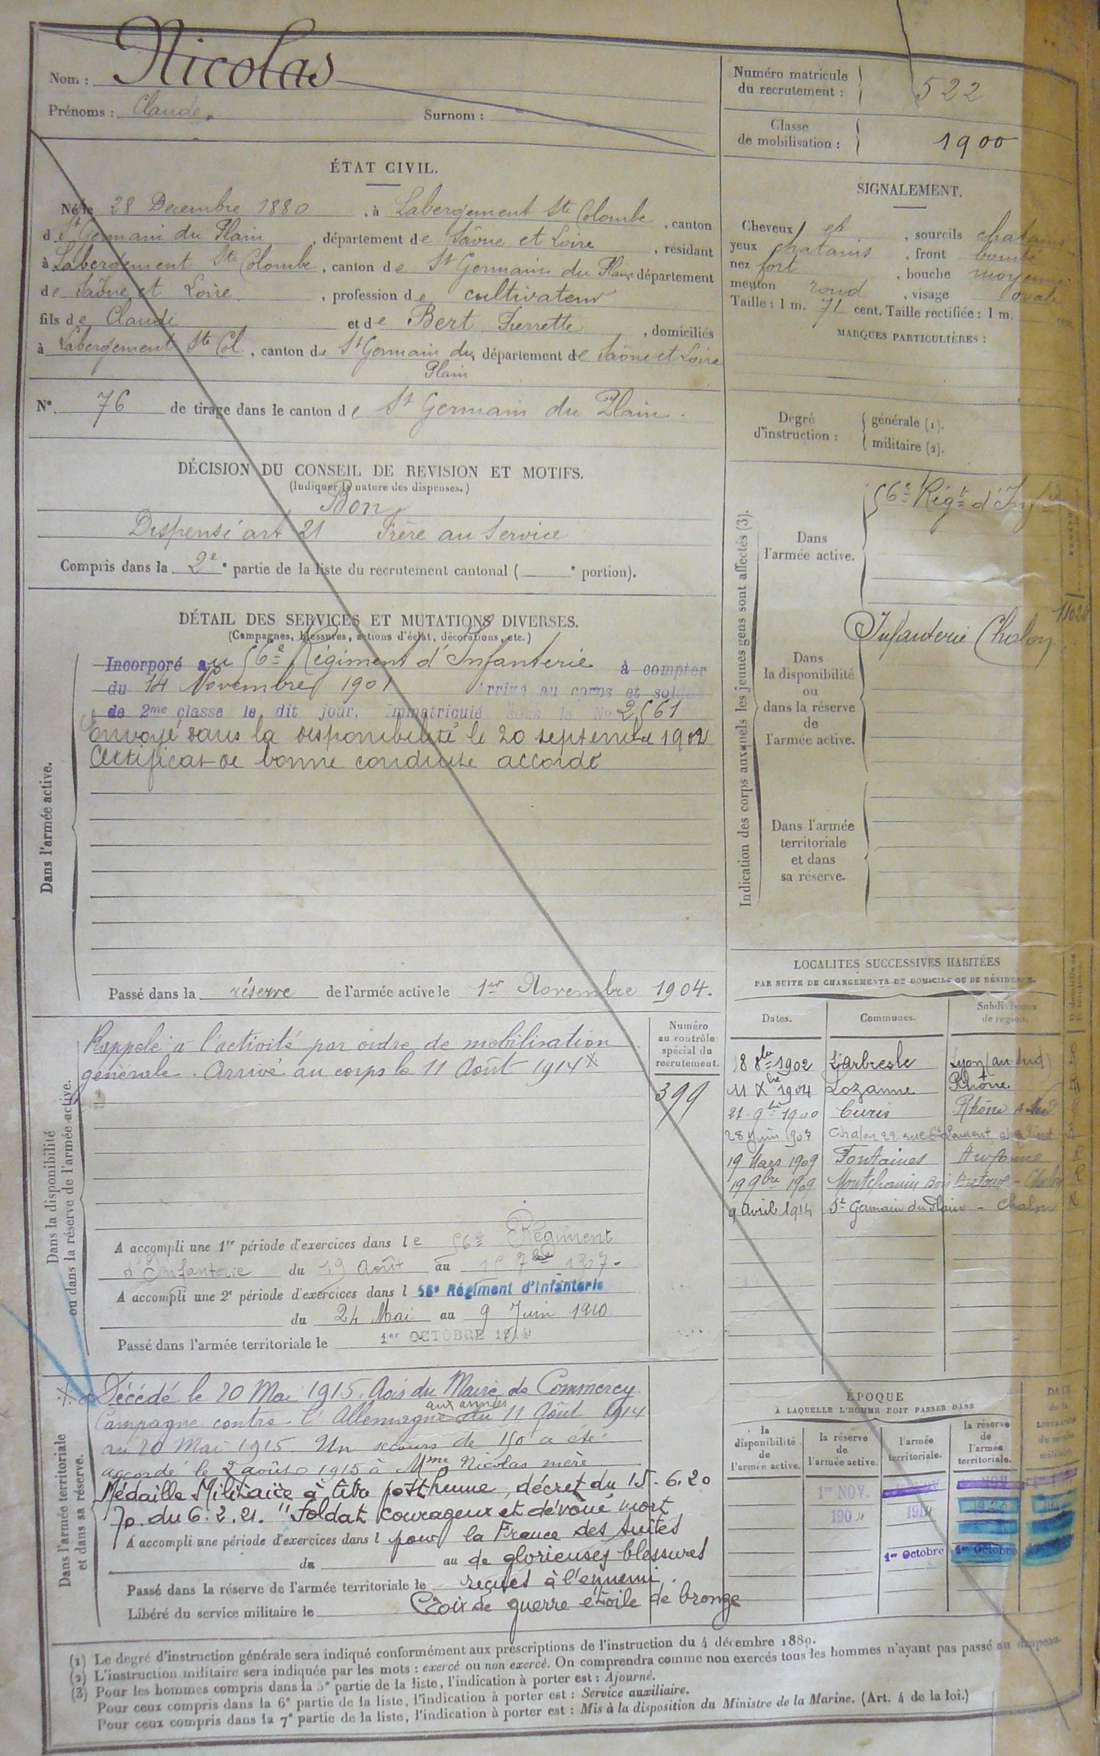 Nom : Nicolas
Prénoms : Claude. Surnom :
Numéro matricule du recrutement : 522
Classe de mobilisation : 1900
ÉTAT CIVIL.
Né le 28 Decembre 1880, à Labergement Ste Colombe, canton
d St Germain du Plain, département de Saône et Loire, résidant
à Labergement Ste Colombe, canton de St Germain du Plain département
de Saône et Loire, profession de cultivateur
fils de Claude et de Bert Pierrette, domiciliés
à Labergement Ste Col, canton de St Germain du Plain département de Saône et Loire
N° 76 de tirage dans le canton de St Germain du Plain.
DÉCISION DU CONSEIL DE REVISION ET MOTIFS.
(Indiquer la nature des dispenses.)
Bon
Dispensé art 21 Frère au Service
Compris dans la 2e partie de la liste du recrutement cantonal ( e portion).
DÉTAIL DES SERVICES ET MUTATIONS DIVERSES.
(Campagnes, blessures, actions d'éclat, décorations, etc.)
Dans l'armée active.
Incorporé au 56e Régiment d'Infanterie à compter
du 14 Novembre 1901 Arrivé au corps et soldat
de 2me classe le dit jour. Immatriculé sous le No 2561
Envoyé dans la disponibilité le 20 septembre 1902
Certificat de bonne conduite accordé
Passé dans la réserve de l'armée active le 1er Novembre 1904.
Dans la disponibilité
ou dans la réserve de l'armée active.
Rappelé à l'activité par ordre de mobilisation
générale. Arrivé au corps le 11 Août 1914 x
Numéro
au contrôle
spécial du
recrutement.
399
A accompli une 1re période d'exercices dans le 56e Régiment
d'Infanterie du 19 Août au 1907.
A accompli une 2e période d'exercices dans l 56e Régiment d'Infanterie
du 24 Mai au 9 Juin 1910
Passé dans l'armée territoriale le 1er OCTOBRE
Dans l'armée territoriale
et dans sa réserve.
x Décédé le 20 Mai 1915. Avis du Maire de Commercy
aux armées
Campagne contre l'Allemagne du 11 Août 1914
au 20 Mai 1915. Un secours de 150 a été
accordé le 2 août 1915 à Mme Nicolas mère.
Médaille Militaire à titre posthume, décret du 15.6.20
Jo. du 6.2.21. "Soldat courageux et dévoué mort
A accompli une période d'exercices dans l pour la France des suites
du au de glorieuses blessures
Passé dans la réserve de l'armée territoriale le reçues à l'ennemi.
Libéré du service militaire le Croix de guerre étoile de bronze
SIGNALEMENT.
Cheveux et, sourcils chatains
yeux chatains, front bombé
nez fort, bouche moyenne
menton rond, visage ovale
Taille : 1 m. 71 cent. Taille rectifiée : 1 m.
MARQUES PARTICULIÈRES :
Degré d'instruction : générale (1).
militaire (2).
Indication des corps auxquels les jeunes gens sont affectés (3).
Dans
l'armée active.
56e Régt d'Inf
Dans
la disponibilité
ou
dans la réserve
de
l'armée active.
Infanterie Chalon
Dans l'armée
territoriale
et dans
sa réserve.
LOCALITES SUCCESSIVES HABITÉES
PAR SUITE DE CHANGEMENTS DE DOMICILE OU DE RÉSIDENCE.
Dates. Communes. Subdivisions de region.
18 8bre 1902 L'arbresle Lyon (au sud)
11 Xbre 1904 Lozanne Rhône
Curis Rhône
28 Juin 1907 Chalon 29 rue St Laurent
19 Mars 1909 Fontaines Autonne
19 9bre 1909 Montchanin
9 Avril 1914 St Germain du Plain - Chalon
ÉPOQUE
À LAQUELLE L'HOMME DOIT PASSER DANS
la
disponibilité
de
l'armée active.
la réserve
de
l'armée active.
l'armée
territoriale.
la réserve
de
l'armée
territoriale.
1er NOV.
190
1er Octobre 1er Octobre
(1) Le degré d'instruction générale sera indiqué conformément aux prescriptions de l'instruction du 4 décembre 1889.
(2) L'instruction militaire sera indiquée par les mots : exercé ou non exercé. On comprendra comme non exercés tous les hommes n'ayant pas passé au drapeau.
(3) Pour les hommes compris dans la 5e partie de la liste, l'indication à porter est : Ajourné.
Pour ceux compris dans la 6e partie de la liste, l'indication à porter est : Service auxiliaire.
Pour ceux compris dans la 7e partie de la liste, l'indication à porter est : Mis à la disposition du Ministre de la Marine. (Art. 4 de la loi.)